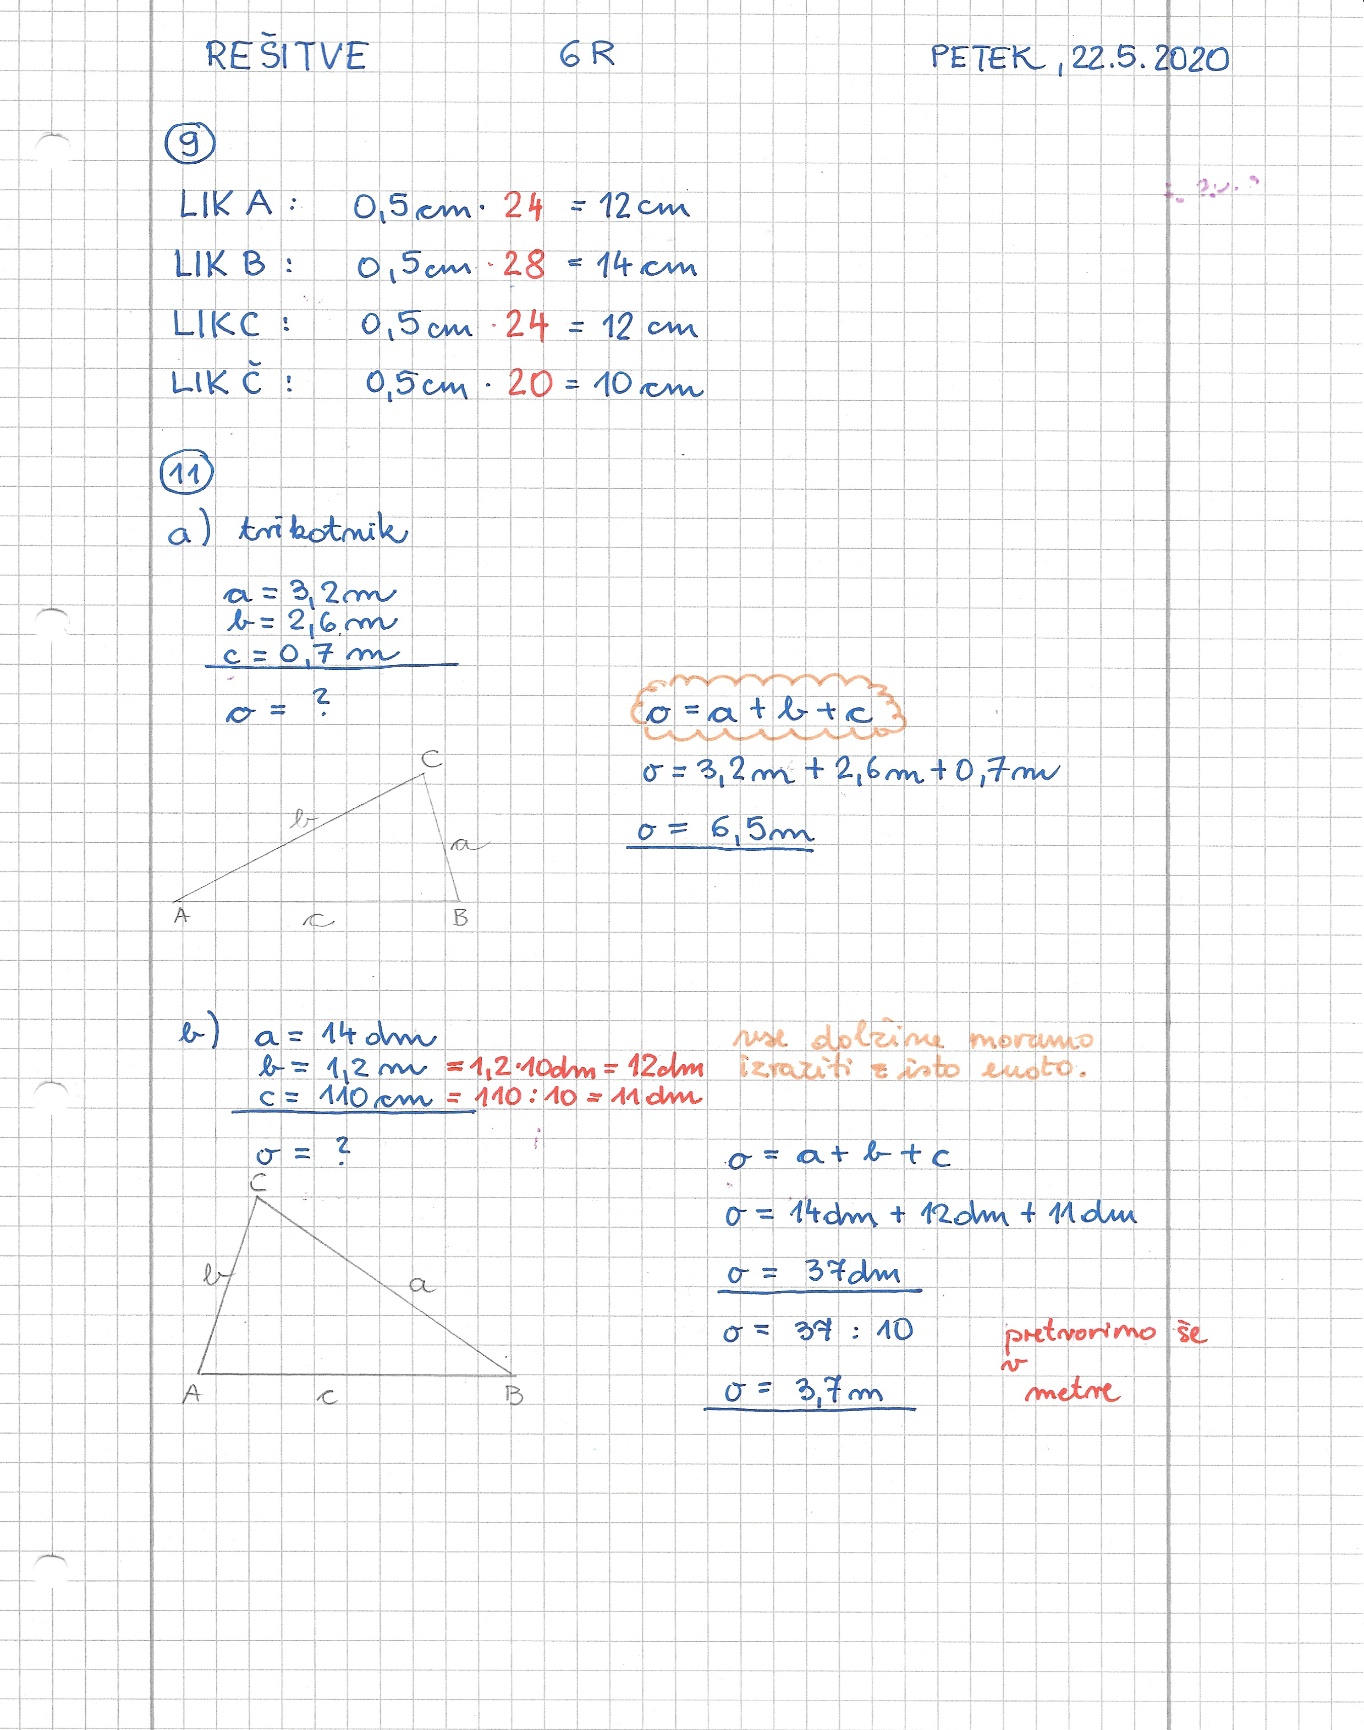 REŠITVE 6R PETEK, 22.5.2020
9
LIK A : 0,5cm · 24 = 12 cm
LIK B : 0,5cm · 28 = 14 cm
LIK C : 0,5cm · 24 = 12 cm
LIK Č : 0,5cm · 20 = 10 cm
11
a) trikotnik
a = 3,2 m
b = 2,6 m
c = 0,7 m
o = ?
o = a + b + c
o = 3,2m + 2,6m + 0,7m
o = 6,5m
C
b
a
A
c
B
b) a = 14 dm
b = 1,2 m = 1,2·10dm = 12dm
c = 110 cm = 110 : 10 = 11 dm
vse dolžine moramo
izraziti z isto enoto.
o = ?
o = a + b + c
o = 14dm + 12dm + 11dm
o = 37dm
o = 37 : 10
o = 3,7m
pretvorimo še
v
metre
C
b
a
A
c
B